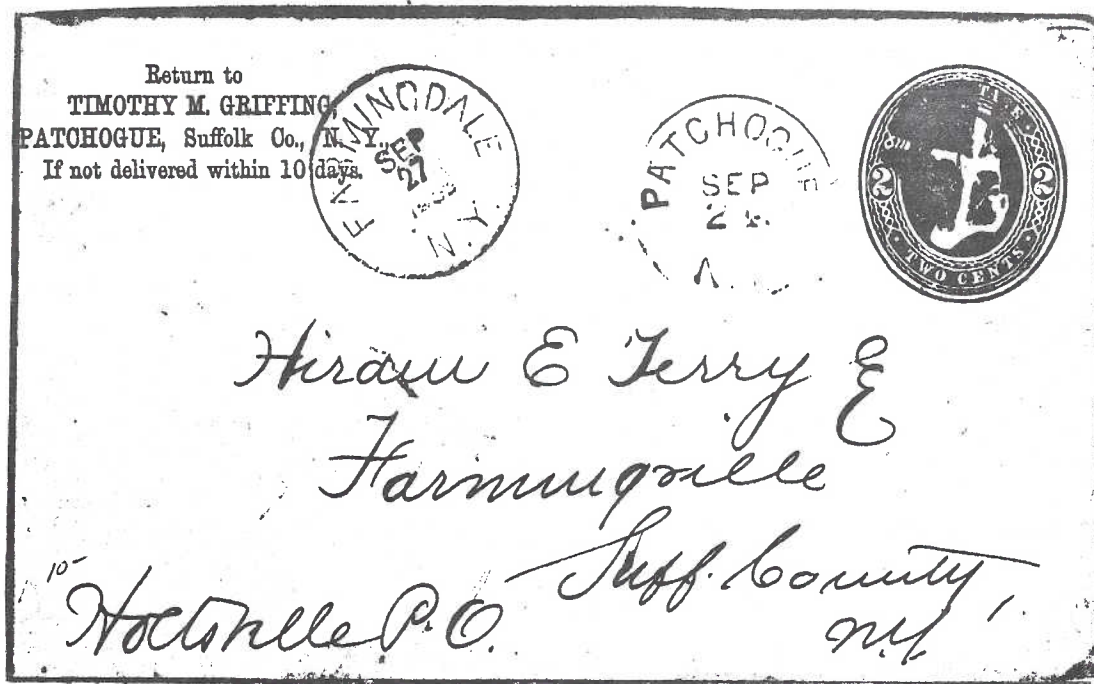 Return to
TIMOTHY M. GRIFFING,
PATCHOGUE, Suffolk Co., N. Y.,
If not delivered within 10 days.
FARMINGDALE
SEP
27
N.Y.
PATCHOGUE
SEP
2
2
TWO CENTS
Hiram E Terry E
Farmingville
Suff. County,
N.Y.
10-
Holtsville P.O.